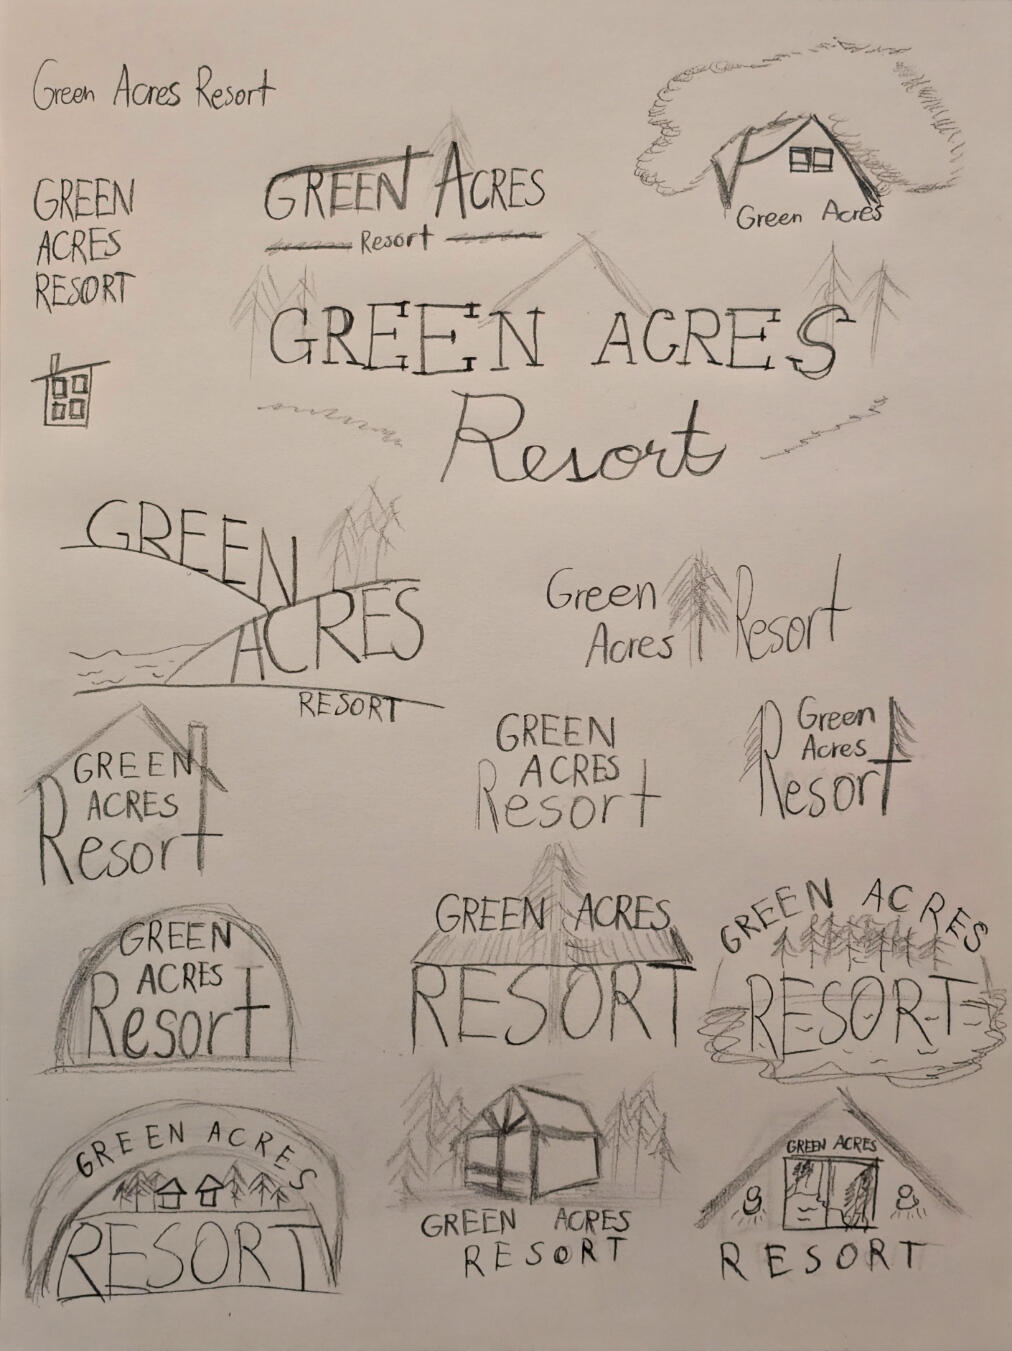 Green Acres Resort
GREEN
ACRES
RESORT
GREEN ACRES
Resort
Green Acres
GREEN ACRES
Resort
GREEN
ACRES
RESORT
Green
Acres
Resort
GREEN
ACRES
Resort
GREEN
ACRES
Resort
Green
Acres
Resort
GREEN
ACRES
Resort
GREEN ACRES
RESORT
GREEN ACRES
RESORT
GREEN ACRES
RESORT
GREEN ACRES
RESORT
GREEN ACRES
RESORT